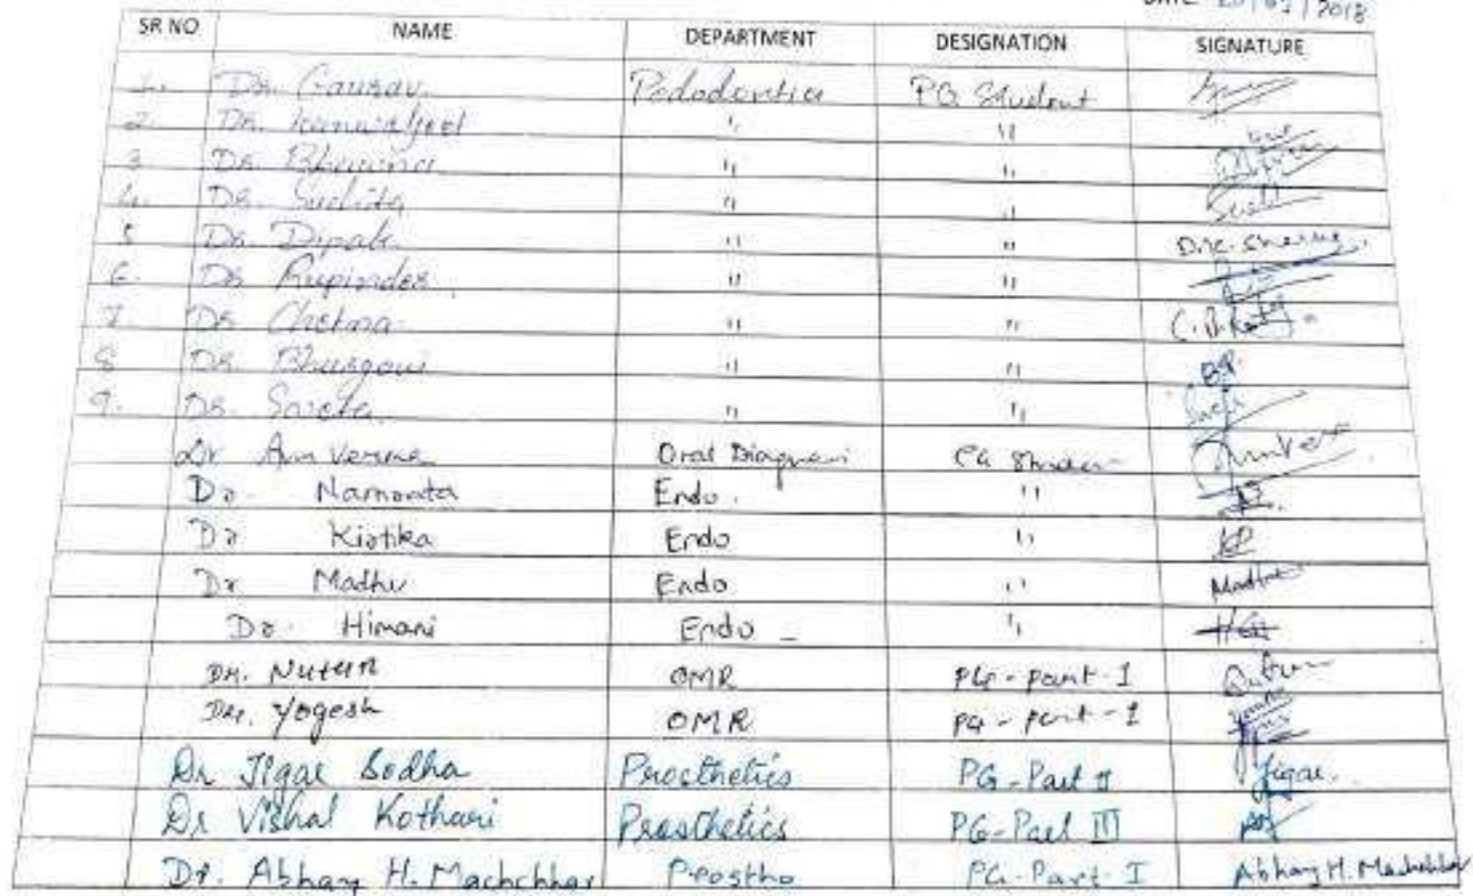 DATE 20/01/2018
SR NO NAME DEPARTMENT DESIGNATION SIGNATURE
1. Dr. Gaurav Pedodontia PG Student
2. Dr. Kanwaljeet " "
3. Dr. Bhawna " "
4. Dr. Suchita " "
5 Dr. Dipak " " D.K. Sharma
6. Dr. Rupinder " "
7. Dr. Chetna " "
8 Dr. Bhargavi " " B.P.
9. Dr. Sneha " "
Dr Anu Verma Oral Diagnosis PG Student
Dr. Namrata Endo. "
Dr Kirtika Endo " KP
Dr Madhu Endo " Madhu
Dr. Himani Endo "
Dr. Nutun OMR PG-part-I Nutun
Dr. Yogesh OMR PG-part-I
Dr Jigar Sodha Prosthetics PG-Part II Jigar.
Dr Vishal Kothari Prosthetics PG-Part III
Dr. Abhay H. Machchhar Prostho PG-Part-I Abhay H. Machchhar